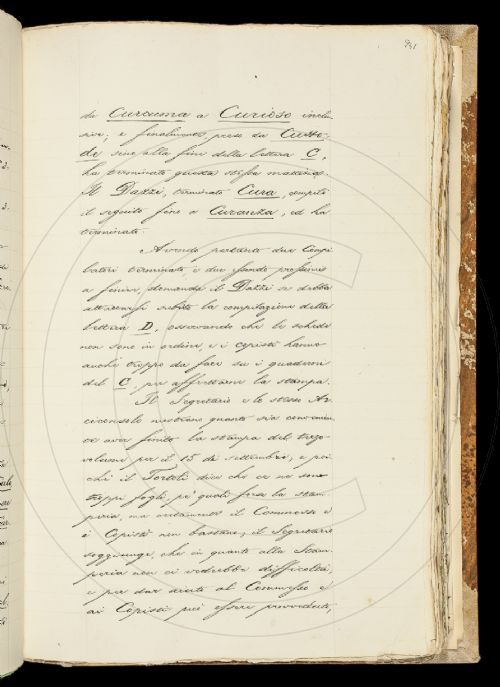 931
da Curcuma a Curioso inclu
sive; e finalmente, preso da Custo-
de sino alla fine della lettera C,
ha terminato questa stessa materia.
Il Dazzi, terminato Cura, compilò
il seguito fino a Curanza, ed ha
terminato.
Avendo pertanto due Compi
latori terminato, e due stando prossimi
a finire, domanda il Dazzi se debba
attenersi subito la compilazione della
lettera D, osservando che le schede
non sono in ordine, e i copisti hanno
anche troppo da fare su i quaderni
del C, per affrettarne la stampa.
Il Segretario e lo stesso Ar
ciconsolo mostrano quanto sia convenien
te aver finito la stampa del terzo
volume per il 15 di settembre; e poi
chè il Tortoli dice che ce ne sono
troppi fogli, pe' quali forse la stam
peria, ma certamente il Commesso e
i Copisti non bastano; il Segretario
soggiunge, che in quanto alla Stam
peria non ci vedrebbe difficoltà,
e per dar aiuto al Commesso e
ai Copisti può essere provveduto,